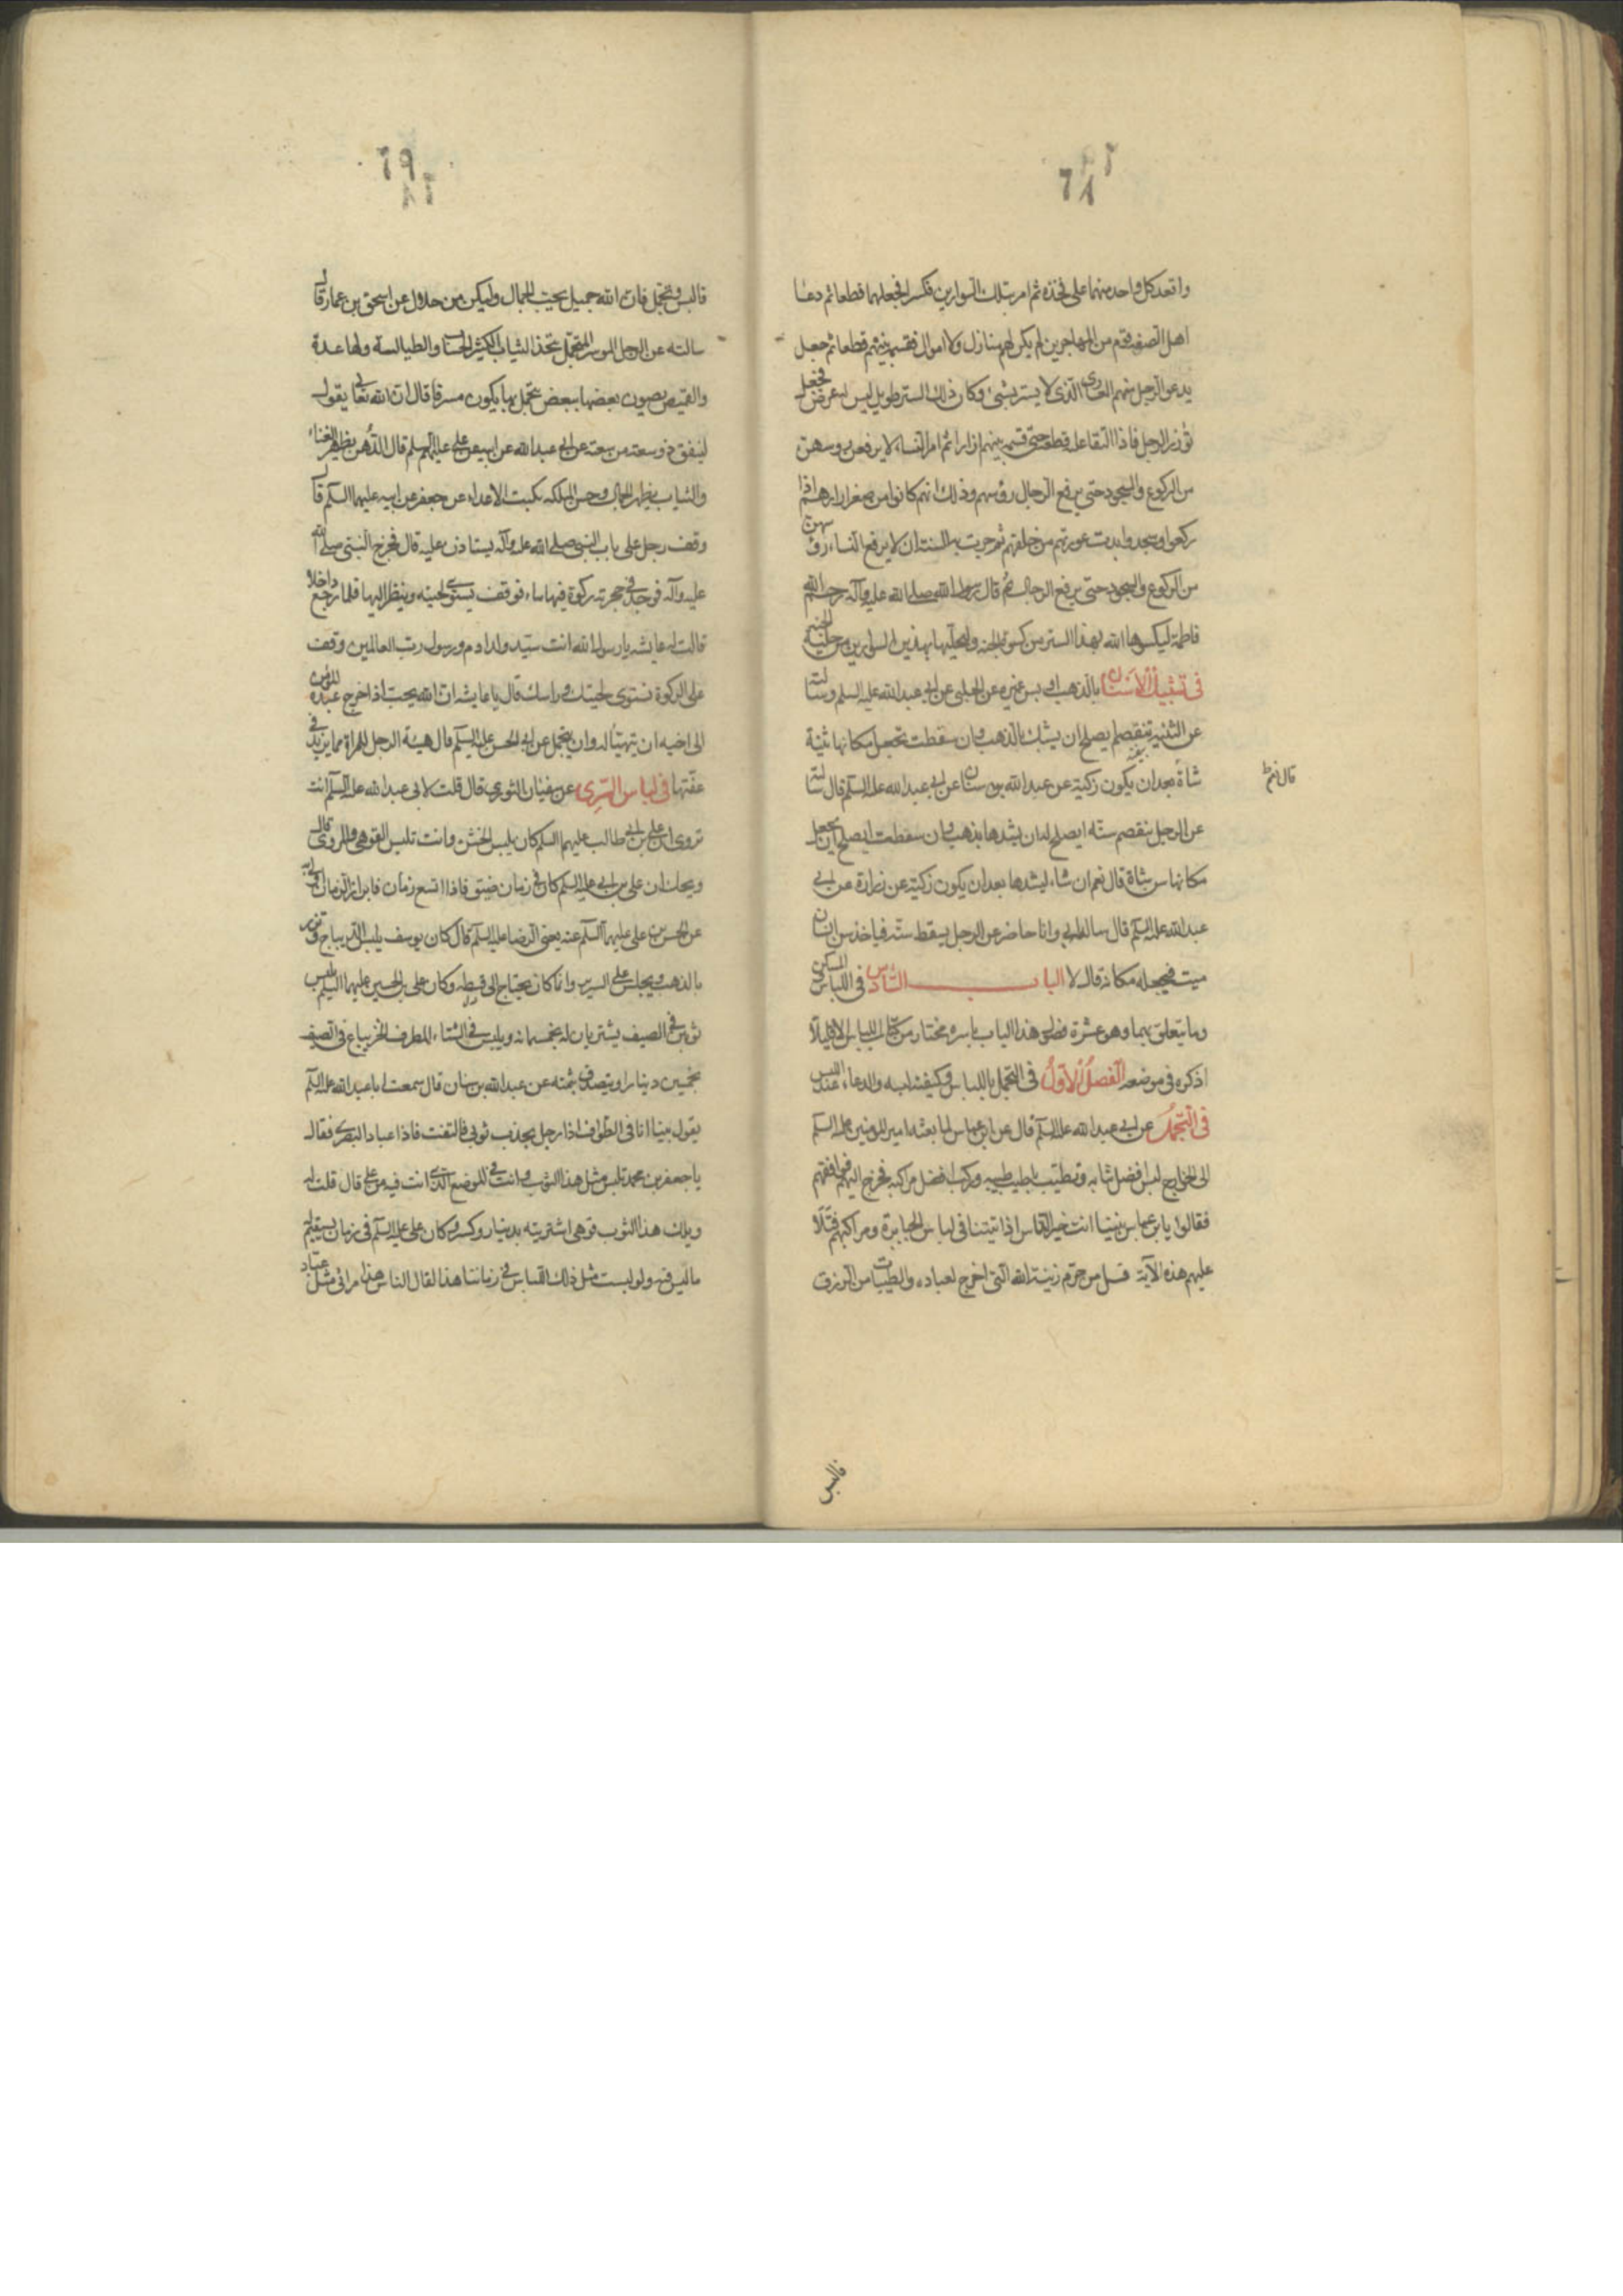 واقعد كل واحد منهما على فخذه ثم امر بتلك السوارين فكسرا فجعلهما قطعا ثم دعا
اهل الصفة قوم من المهاجرين لم يكن لهم منازل ولا اموال فقسمه بينهم قطعا ثم جعل
يدعو الرجل منهم العارى الذى لا يستر بشئ وكان ذلك الستر طويل ليس له عرض فجعل
يؤزر الرجل فاذا التقا عليه قطعه حتى قسمه بينهم ازارا ثم امر النساء لا يرفعن روسهن
من الركوع والسجود حتى يرفع الرجال رؤسهم وذلك انهم كانوا من صغر ازارهم اذا
ركعوا وسجدوا بدت عورتهم من خلفهم ثم جرت به السنة ان لا يرفع النساء رؤسهن
من الركوع والسجود حتى يرفع الرجال ثم قال رسول الله صلى الله عليه وآله رحم الله
فاطمة ليكسوها الله بهذا الستر من كسوة الجنة وليحلينها بهذين السوارين من حلية الجنة
فى تشبيك الاسنان بالذهب وبس غيره عن الحلبى عن ابى عبدالله عليه السلم وسالته
عن الثنية تنفصم ايصلح ان يشبك بالذهب وان سقطت تجعل مكانها ثنية
شاة بعد ان يكون زكية عن عبدالله بن سنان عن ابى عبدالله عليه السلم قال سالته
قال نعم
عن الرجل ينفصم سنه ايصلح له ان يشدها بذهب وان سقطت ايصلح ان يجعل
مكانها سن شاة قال نعم ان شاء ليشدها بعد ان يكون زكية عن زرارة عن ابى
عبدالله عليه السلم قال ساله ابى وانا حاضر عن الرجل يسقط سنه فياخذ سن انسان
ميت فيجعله مكانه قال لا الباب السادس فى اللباس والمسكن
وما يتعلق بهما وهو عشرة فصول هذا الباب باسره مختار من كتاب اللباس الا قليلا
اذكره فى موضعه الفصل الاول فى التجمل باللباس وكيفية لبسه والدعاء عند اللبس
فى التجمل عن ابى عبدالله عليه السلم قال عن ابن عباس لما بعثه امير المومنين عليه السلم
الى الخوارج لبس افضل ثيابه وتطيب باطيب طيبه وركب افضل مراكبه فخرج اليهم فوافقهم
فقالوا يا بن عباس بينا انت خير الناس اذ اتيتنا فى لباس الجبابرة ومراكبهم فتلا
عليهم هذه الآية قل من حرم زينة الله التى اخرج لعباده والطيبات من الرزق
فالبس
فالبس وتجمل فان الله جميل يحب الجمال وليكن من حلال عن اسحق بن عمار قال
سالته عن الرجل الموسر المتجمل يتخذ الثياب الكثيرة الحسان والطيالسة ولها عدة
والقميص يصون بعضها ببعض يتجمل بها يكون مسرفا قال ان الله تعالى يقول
لينفق ذو سعة من سعته عن ابى عبدالله عن ابيه عن على عليهم السلم قال الدهن يظهر الغناء
والثياب يظهر الجمال وحسن الملكة يكبت الاعداء عن جعفر عن ابيه عليهما السلم قال
وقف رجل على باب النبى صلى الله عليه وآله يستاذن عليه قال فخرج النبى صلى الله
عليه وآله فوجد فى حجرته ركوة فيها ماء فوقف يسوى لحيته وينظر اليها فلما رجع داخلا
قالت له عايشه يا رسول الله انت سيد ولد ادم ورسول رب العالمين وقفت
على الركوة تستوى لحيتك وراسك قال يا عايشه ان الله يحب اذا خرج عبده المؤمن
الى اخيه ان يتهيئا له وان يتجمل عن ابى الحسن عليه السلم قال هيئة الرجل للمراة مما يزيد فى
عفتها فى لباس السرى عن سفيان الثورى قال قلت لابى عبدالله عليه السلم انت
تروى ان على بن ابى طالب عليهما السلم كان يلبس الخشن وانت تلبس القوهى والمروى قال
ويحك ان على بن ابى عليه السلم كان فى زمان ضيق فاذا اتسع زمان فابرار الزمان اولى به
عن الحسن بن على عليهما السلم عنه يعنى الرضا عليه السلم قال كان يوسف يلبس الديباج وتزرر
بالذهب ويجلس على السرير وانما كان يحتاج الى قسطه وكان على بن الحسين عليهما السلم يلبس
ثوبين فى الصيف يشتريان له بخمسمائه ويلبس فى الشتاء المطرف الخز يباع فى الصيف
بخمسين دينارا ويتصدق بثمنه عن عبدالله بن سنان قال سمعت ابا عبدالله عليه السلم
يقول بينا انا فى الطواف اذا رجل يجذب ثوبى فالتفت فاذا عباد البصرى فقال
يا جعفر بن محمد تلبس مثل هذا الثوب وانت فى الموضع الذى انت فيه من على قال قلت له
ويلك هذا الثوب قوهى اشتريته بدينار وكسر وكان على عليه السلم فى زمان يستقيم له
ما لبس فيه ولو لبست مثل ذلك اللباس فى زماننا هذا لقال الناس هذا مرائى مثل عباد